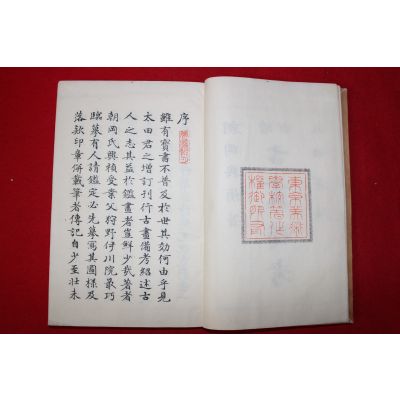 東京美術
學校
序
雖有寶書不普及於世其効何由乎見
太田君之增訂刊行古畫備考紹述古
人之志其益於鑑畫者豈鮮少哉著者
朝岡氏興禎受業父狩野伊川院最巧
臨摹有人請鑑定必先摹寫其圖樣及
落款印章併載筆者傳記自少至壯未